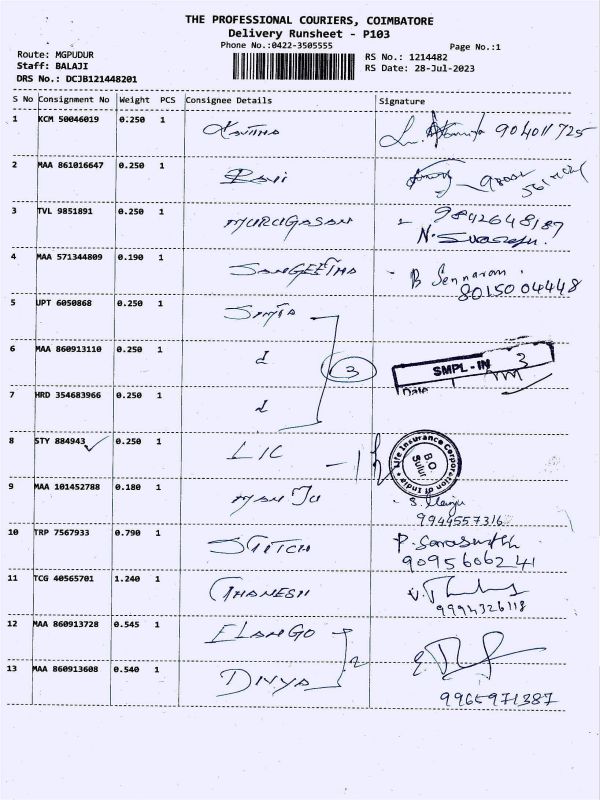 THE PROFESSIONAL COURIERS, COIMBATORE
Delivery Runsheet - P103
Phone No.:0422-3505555
Page No.:1
Route: MGPUDUR
Staff: BALAJI
DRS No.: DCJB121448201
RS No.: 1214482
RS Date: 28-Jul-2023
S No Consignment No Weight PCS Consignee Details Signature
1 KCM 50046019 0.250 1 904011725
2 MAA 861016647 0.250 1 Ravi
3 TVL 9851891 0.250 1 MURUGASAN 9842648187
4 MAA 571344809 0.190 1 SANGEETHA B Sennaram.
8015004448
5 UPT 6050868 0.250 1
6 MAA 860913110 0.250 1 d 3 SMPL - IN 3
Date
7 HRD 354683966 0.250 1 d
8 STY 884943 0.250 1 LIC - 1 Life Insurance Corporation of India B O Sulur
9 MAA 101452788 0.180 1 MANJU S. Manju
9944557316
10 TRP 7567933 0.790 1 STITCH P. Saraswathi
9095606241
11 TCG 40565701 1.240 1 THANESH
9994326118
12 MAA 860913728 0.545 1 ELANGO 2
13 MAA 860913608 0.540 1 DIVYA
9965971387